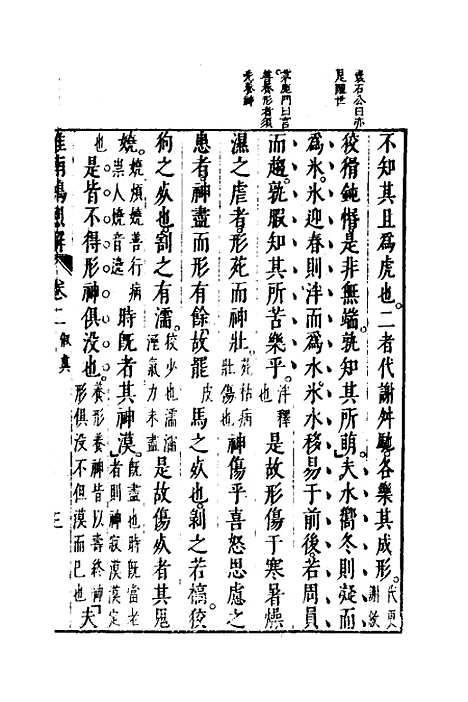 袁石公曰亦
足醒世
茅鹿門曰言
善養形者須
先養神
不知其且爲虎也。二者代謝舛馳。各樂其成形。代更謝敘
狡猾鈍惛是非無端。孰知其所萌。夫水嚮冬則凝而
爲氷。氷迎春則泮而爲水。氷水移易于前後。若周員
而趨。孰暇知其所苦樂乎。泮釋也是故形傷于寒暑燥
濕之虐者形苑而神壯。苑枯病壯傷也神傷乎喜怒思慮之
患者。神盡而形有餘。故罷皮馬之死也。剥之若槁。狡
狗之死也。割之有濡。狡少也濡濡溼氣力未盡是故傷死者其鬼
嬈。嬈煩嬈善行病祟人嬈音遶時旣者其神漠。旣盡也時旣當老者則神寂漠漠定
也是皆不得形神俱沒也。養形養神皆以壽終神形俱沒不但漠而已也夫
淮南鴻烈解 卷二 俶真 三